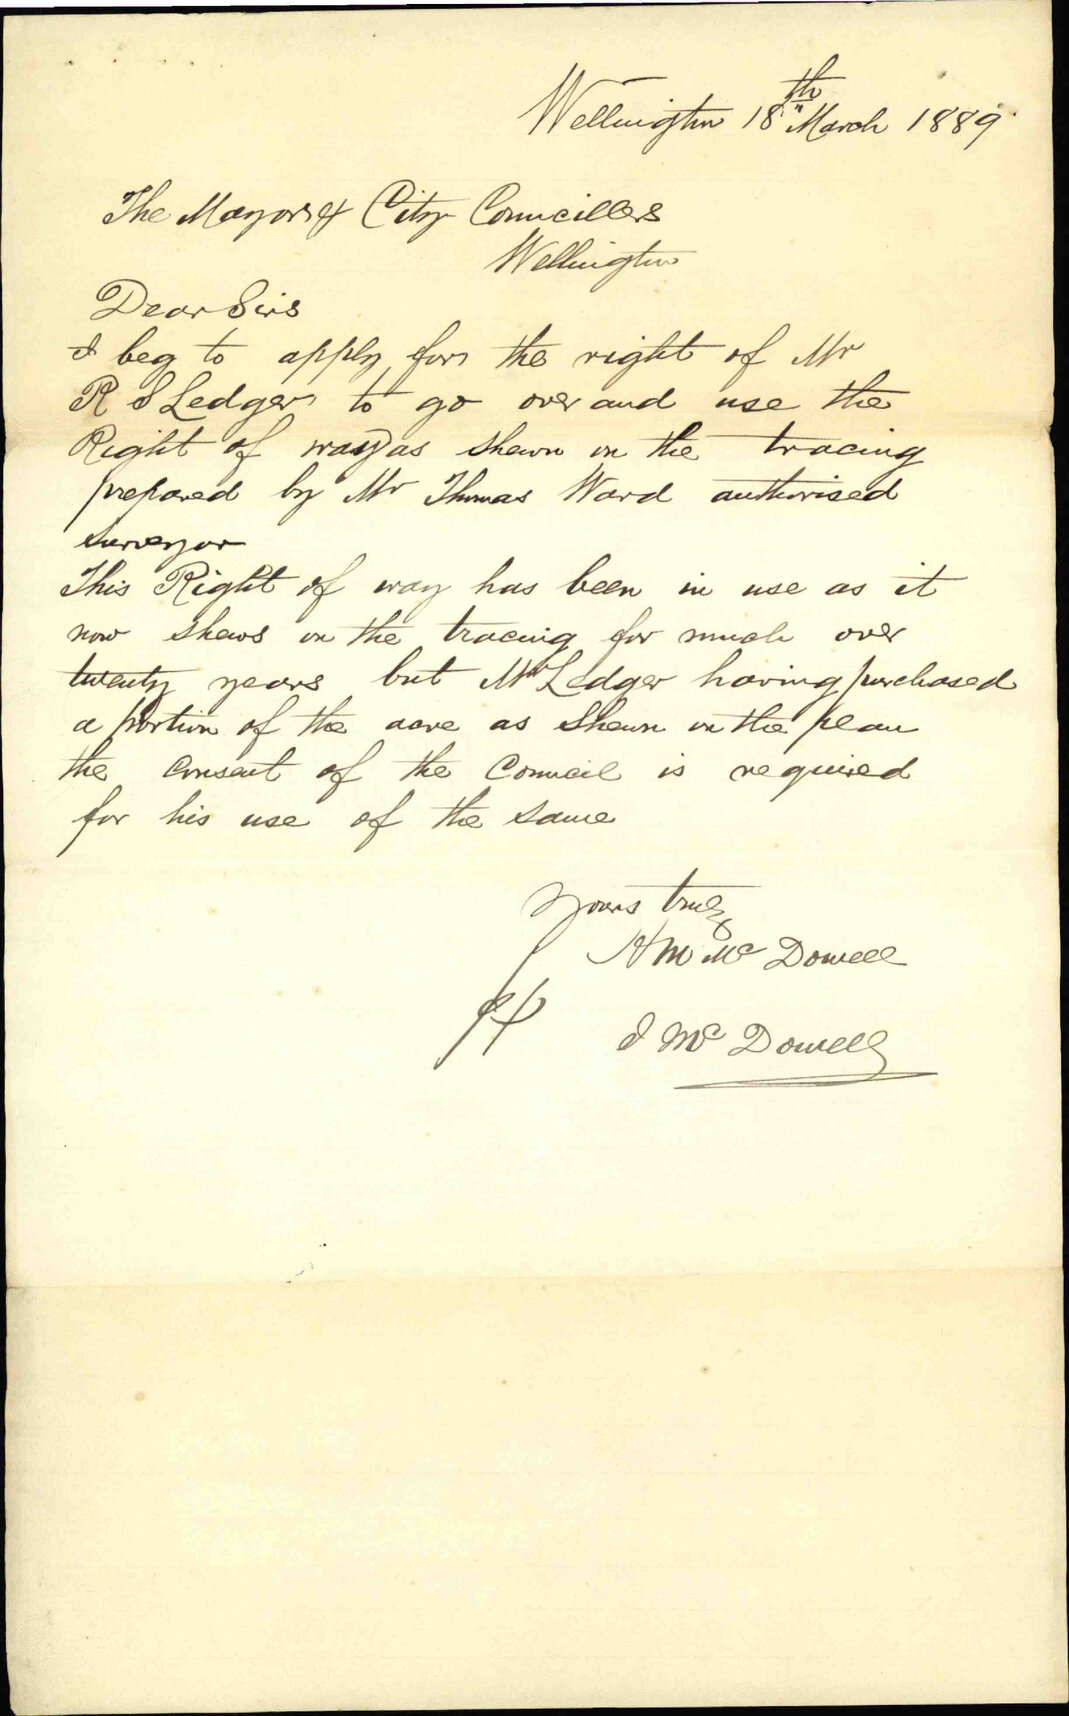 Wellington 18th March 1889
The Mayor & City Councillers
Wellington
Dear Sirs
I beg to apply for the right of Mr
R S Ledger to go over and use the
Right of way as shewn on the tracing
prepared by Mr Thomas Ward authorised
surveyor
This Right of way has been in use as it
now shews on the tracing for much over
twenty years but Mr Ledger having purchased
a portion of the acre as shewn on the plan
the consent of the Council is required
for his use of the same
Yours truly
H M Mc Dowell
J Mc Dowell